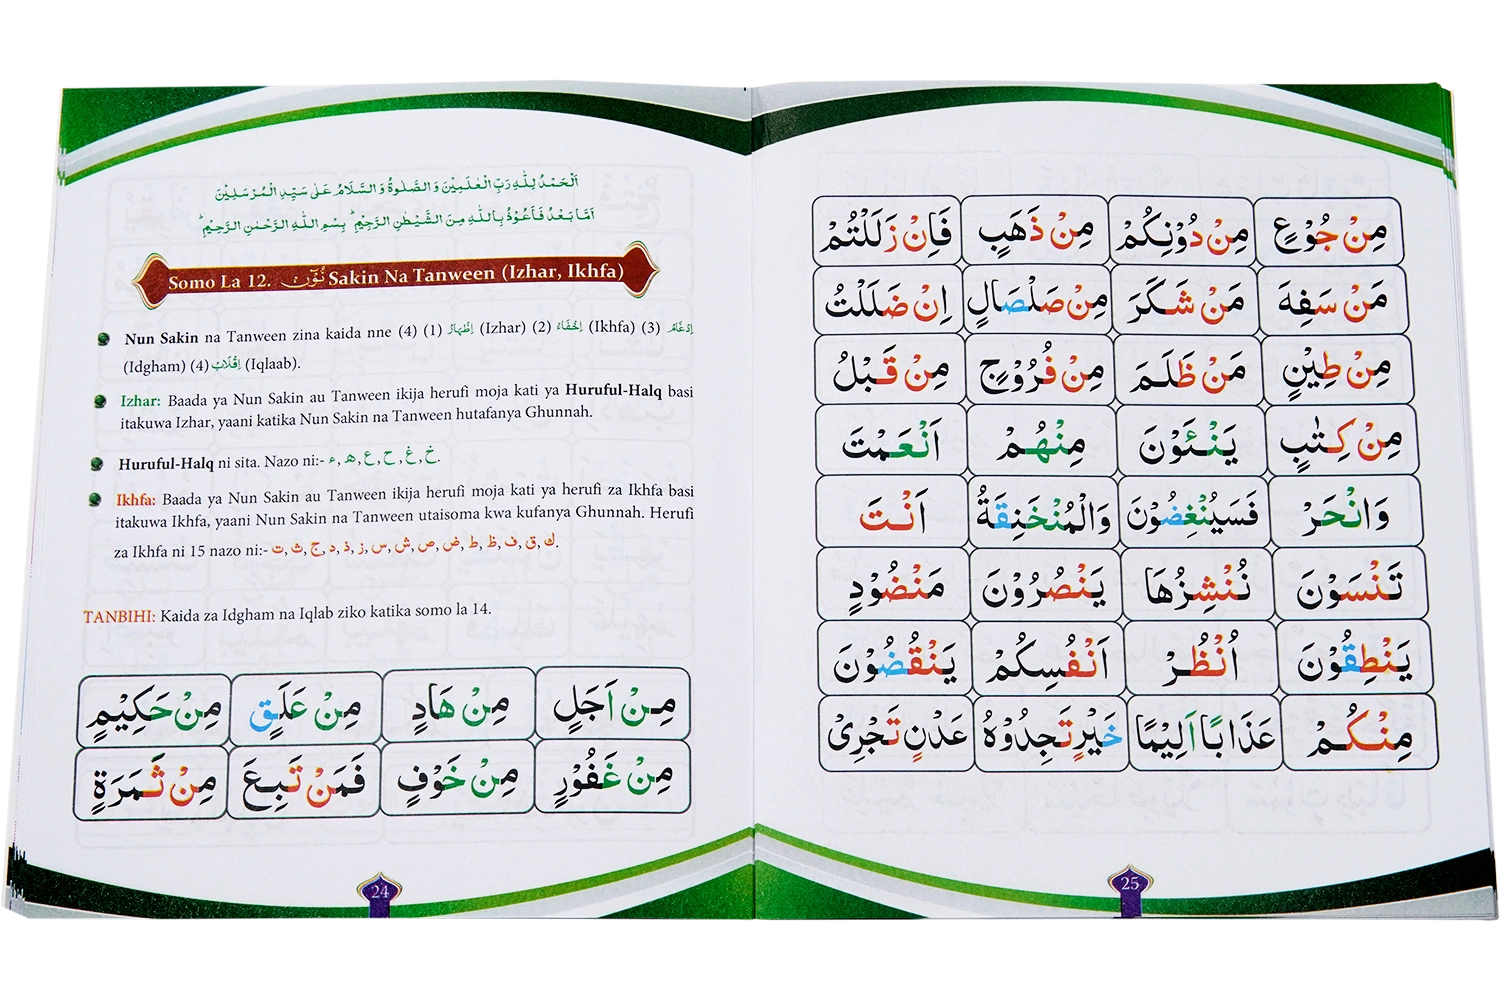 اَلْحَمْدُ لِلّٰهِ رَبِّ الْعٰلَمِيْنَ وَ الصَّلٰوةُ وَ السَّلَامُ عَلٰى سَيِّدِ الْمُرْسَلِيْنَ
اَمَّا بَعْدُ فَاَعُوْذُ بِاللّٰهِ مِنَ الشَّيْطٰنِ الرَّجِيْمِ ؕ بِسْمِ اللّٰهِ الرَّحْمٰنِ الرَّحِيْمِ ؕ
Somo La 12. نُوْن Sakin Na Tanween (Izhar, Ikhfa)
Nun Sakin na Tanween zina kaida nne (4) (1) اِظْهَارْ (Izhar) (2) اِخْفَاءْ (Ikhfa) (3) اِدْغَامْ
(Idgham) (4) اِقْلَابْ (Iqlaab).
Izhar: Baada ya Nun Sakin au Tanween ikija herufi moja kati ya Huruful-Halq basi
itakuwa Izhar, yaani katika Nun Sakin na Tanween hutafanya Ghunnah.
Huruful-Halq ni sita. Nazo ni:- ء , ھ , ع , ح , غ , خ.
Ikhfa: Baada ya Nun Sakin au Tanween ikija herufi moja kati ya herufi za Ikhfa basi
itakuwa Ikhfa, yaani Nun Sakin na Tanween utaisoma kwa kufanya Ghunnah. Herufi
za Ikhfa ni 15 nazo ni:- ت , ث , ج , د , ذ , ز , س , ش , ص , ض , ط , ظ , ف , ق , ك.
TANBIHI: Kaida za Idgham na Iqlab ziko katika somo la 14.
مِنْ اَجَلٍ مِنْ هَادٍ مِنْ عَلَقٍ مِنْ حَكِيْمٍ
مِنْ غَفُوْرٍ مِنْ خَوْفٍ فَمَنْ تَبِعَ مِنْ ثَمَرَةٍ
24
مِنْ جُوْعٍ مِنْ دُوْنِكُمْ مِنْ ذَهَبٍ فَاِنْ زَلَلْتُمْ
مَنْ سَفِهَ مَنْ شَكَرَ مِنْ صَلْصَالٍ اِنْ ضَلَلْتُ
مِنْ طِيْنٍ مَنْ ظَلَمَ مِنْ فُرُوْجٍ مِنْ قَبْلُ
مِنْ كِتٰبٍ يَنْـَٔوْنَ مِنْهُمْ اَنْعَمْتَ
وَانْحَرْ فَسَيُنْغِضُوْنَ وَالْمُنْخَنِقَةُ اَنْتَ
تَنْسَوْنَ نُنْشِزُهَا يَنْصُرُوْنَ مَنْضُوْدٍ
يَنْطِقُوْنَ اُنْظُرْ اَنْفُسِكُمْ يَنْقُضُوْنَ
مِنْكُمْ عَذَابًا اَلِيْمًا خَيْرٍ تَجِدُوْهُ عَدْنٍ تَجْرِىْ
25